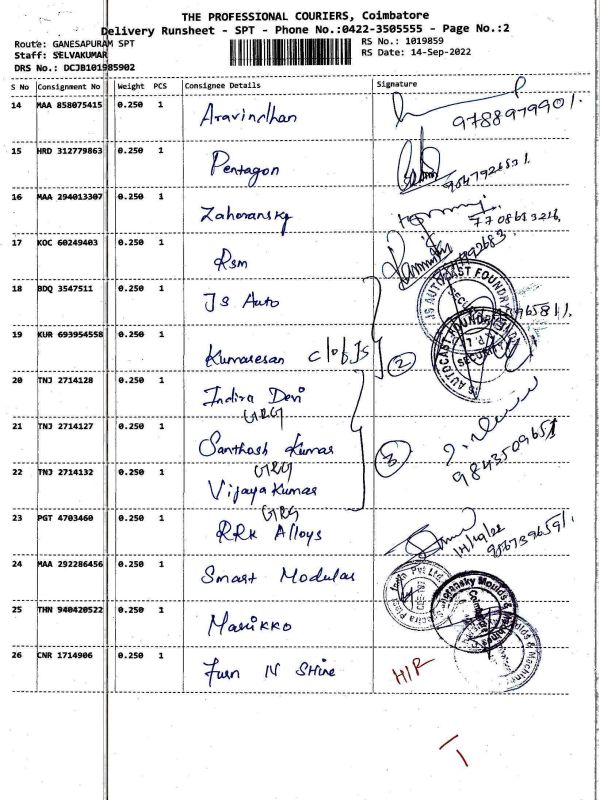 THE PROFESSIONAL COURIERS, Coimbatore
Delivery Runsheet - SPT - Phone No.:0422-3505555 - Page No.:2
Route: GANESAPURAM SPT
RS No.: 1019859
Staff: SELVAKUMAR
RS Date: 14-Sep-2022
DRS No.: DCJB101985902
S No Consignment No Weight PCS Consignee Details Signature
14 MAA 858075415 0.250 1 Aravindhan
9788979901.
15 HRD 312779863 0.250 1 Pentagon
16 MAA 294013307 0.250 1 Zahoransky
7708613216
17 KOC 60249403 0.250 1 Rsm
18 BDQ 3547511 0.250 1 JS Auto
JS AUTOCAST FOUNDRY
19 KUR 693954558 0.250 1 Kumaresan c/of JS
2
SECURITY
20 TNJ 2714128 0.250 1 Indira Devi
GRG
21 TNJ 2714127 0.250 1 Santhosh Kumar
3
GRG
9843509651
22 TNJ 2714132 0.250 1 Vijaya Kumar
GRG
23 PGT 4703460 0.250 1 RRK Alloys
14/9/22
24 MAA 292286456 0.250 1 Smart Modular
25 THN 940420522 0.250 1 Marikko
26 CNR 1714906 0.250 1 Turn N Shine
H/R